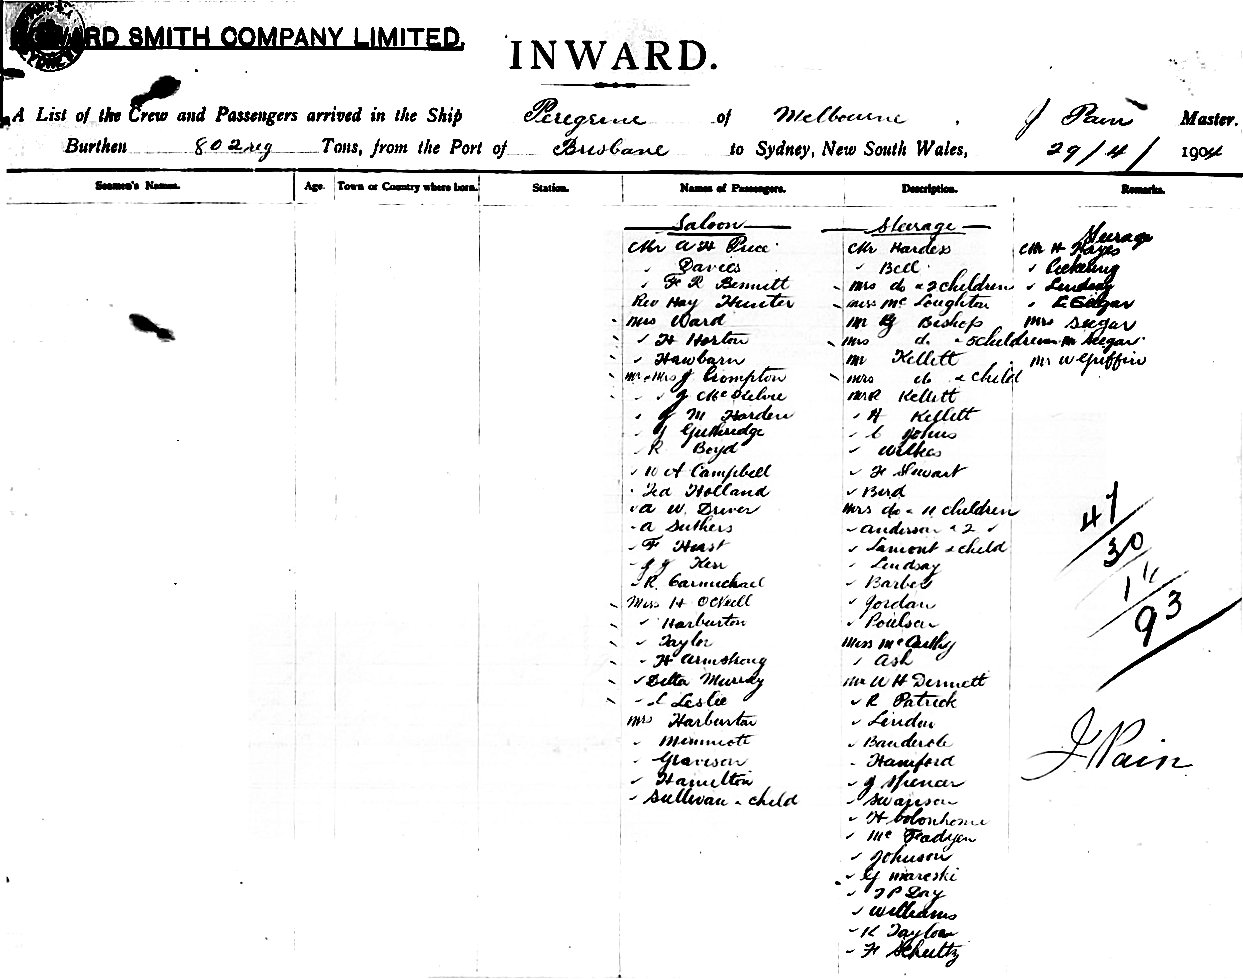 RD SMITH COMPANY LIMITED.
INWARD.
A List of the Crew and Passengers arrived in the Ship Peregrine of Melbourne, J Pain Master.
Burthen 802 reg Tons, from the Port of Brisbane to Sydney, New South Wales, 29/4/ 1904
Seamen's Names. Age. Town or Country where born. Station. Names of Passengers. Description. Remarks.
Saloon
Mr A H Price
✓ Davies
✓ F R Bennett
Rev Hay Hunter
Mrs Ward
✓ H Horton
✓ Hawbarn
Mr & Mrs J Crompton
✓ ✓ J
✓ J M Harden
✓ J Guthridge
✓ R Boyd
✓ W A Campbell
Ted Holland
✓ A W Driver
✓ A Suthers
✓ F Hurst
✓ J J Kerr
✓ R Carmichael
Miss H O'Neill
✓ Harburton
✓ Taylor
✓ H Armstrong
✓ Della Murray
✓ L Leslie
Mrs Harburton
✓
✓ Grayson
✓ Hamilton
✓ Sullivan & child
Steerage
Mr Hardess
✓ Bell
Mrs do & 2 children
Miss McLoughton
Mr G Bishop
Mrs do & 5 children
Mr Kellett
Mrs do & child
Mr R Kellett
✓ H Kellett
✓ C Johns
✓ Wilkes
✓ F Stewart
✓ Bird
Mrs do & 4 children
✓ Anderson & 2 ✓
✓ Lamont & child
✓ Lindsay
✓ Barber
✓ Jordan
✓ Poulsen
Miss McCarthy
✓ Ash
Mr W H Dermett
✓ R Patrick
✓ Linden
✓
✓ Hamford
✓ J Spencer
✓ Swanson
✓ H
✓ McFadyen
✓ Johnson
✓ G Mareski
✓ T P Day
✓ Williams
✓ R Taylor
✓ F Schultz
Steerage
Mr H Hayes
✓ Pickering
✓ Lindsay
✓ E Seegar
Mrs Seegar
M Seegar
Mr W Griffin
47
30
93
J Pain